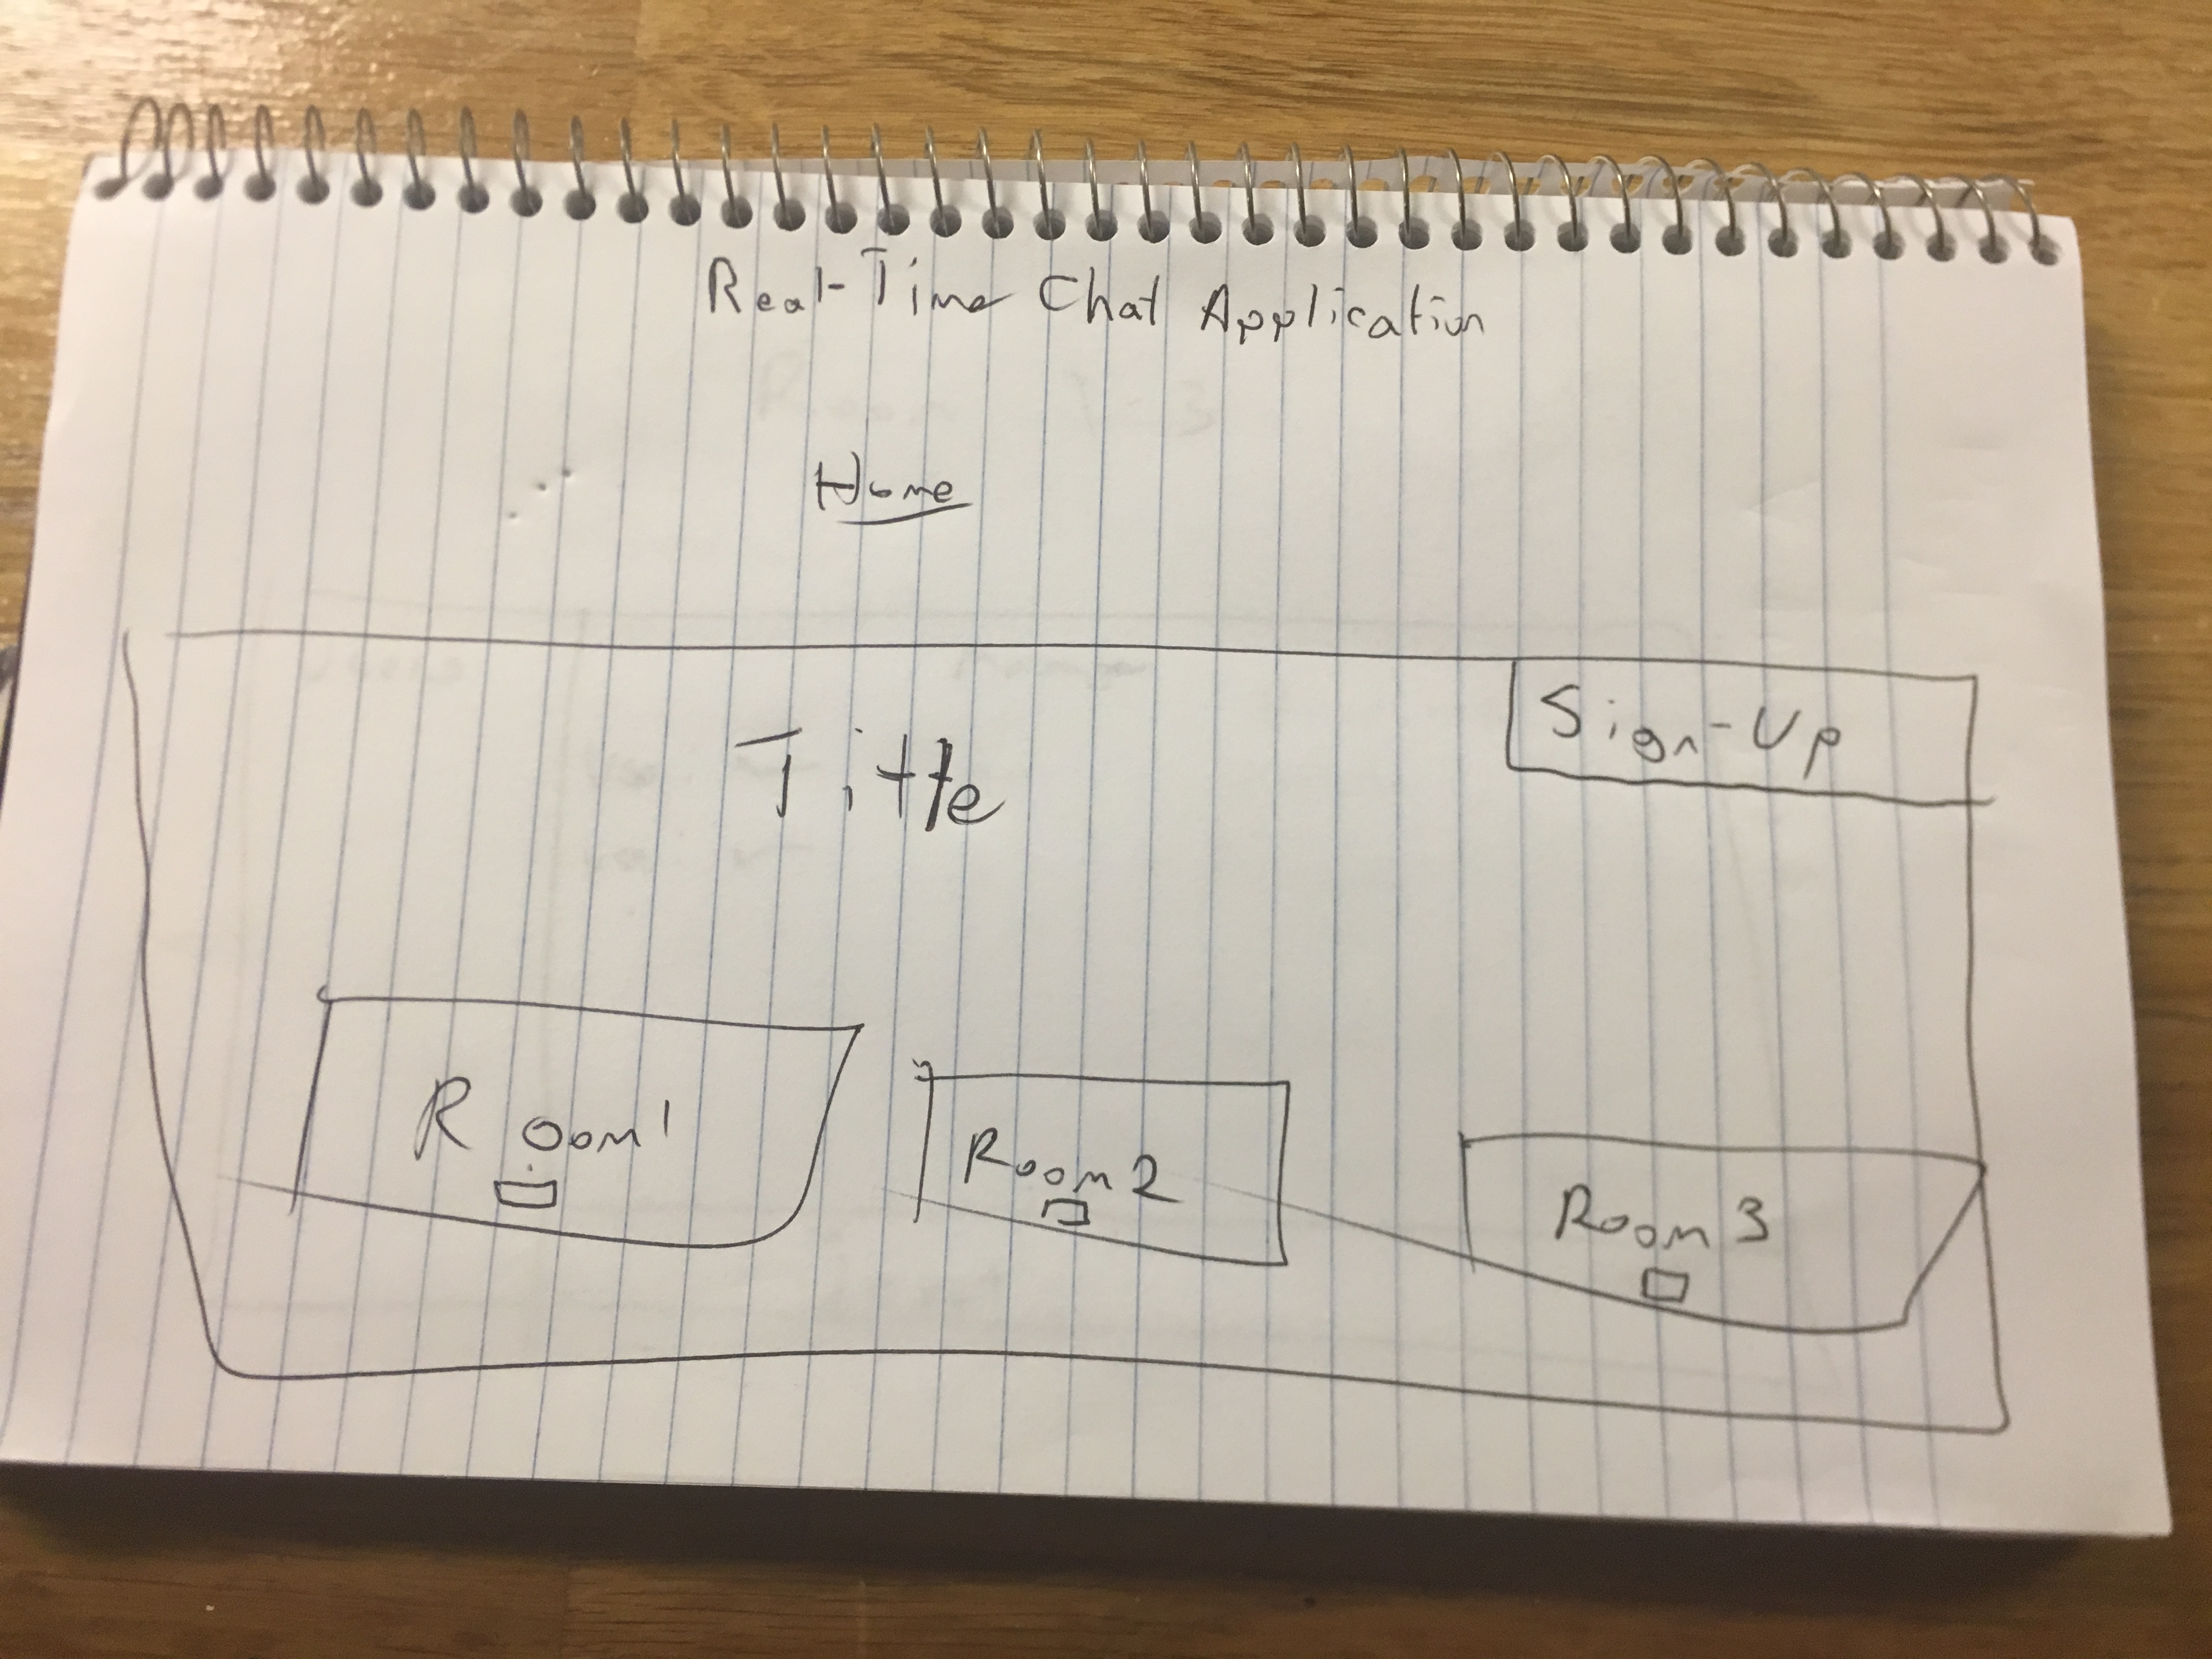 Real-Time Chat Application
Home
Sign-Up
Title
Room 1
Room 2
Room 3